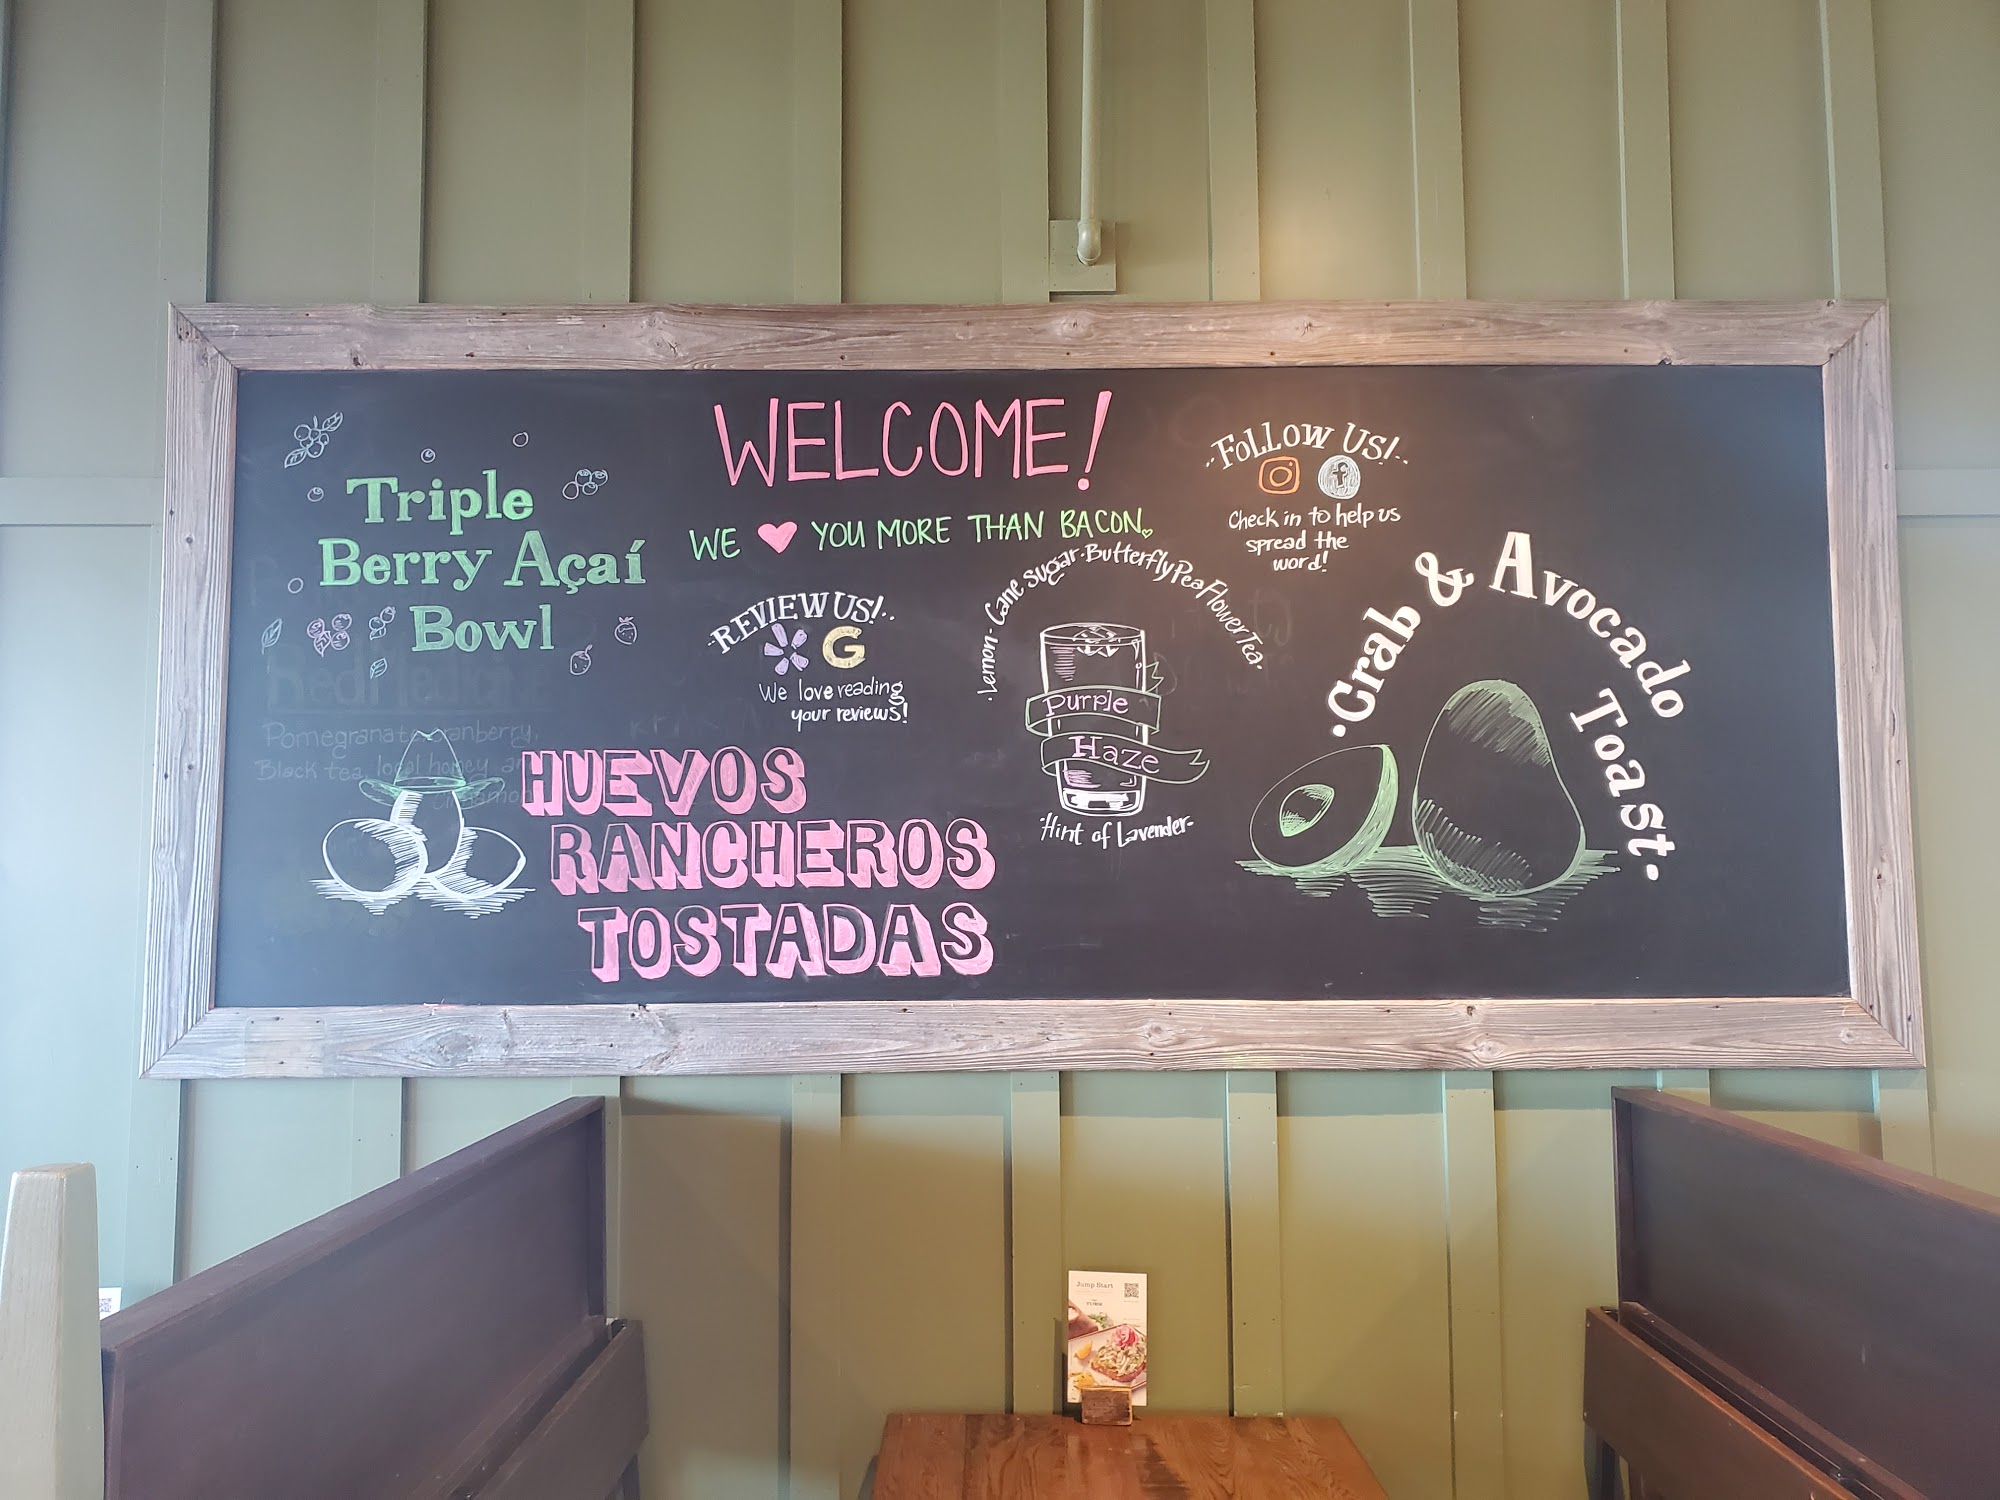 WELCOME!
WE ❤ YOU MORE THAN BACON.
Triple
Berry Açaí
Bowl
·REVIEW US!··
G
We love reading
your reviews!
··FOLLOW US!··
f
Check in to help us
spread the
word!
·Lemon· Cane Sugar·Butterfly Pea Flower Tea·
Purple
Haze
·Hint of Lavender·
·Crab & Avocado
Toast·
Pomegranate cranberry,
Black tea, local honey an
Cinnamon
HUEVOS
RANCHEROS
TOSTADAS
Jump Start